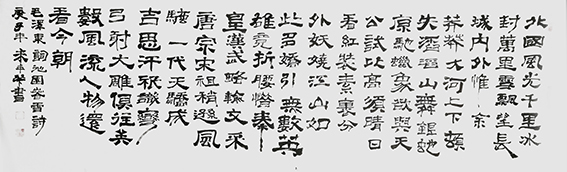 北國風光千里冰
封萬里雪飄望長
城内外惟余
莽莽大河上下頓
失滔滔山舞銀蛇
原馳蠟象欲與天
公試比高須晴日
看紅裝素裹分
外妖嬈江山如
此多嬌引無數英
雄竞折腰惜秦
皇漢武略输文采
唐宗宋祖稍遜風
騷一代天驕成
吉思汗祇識彎
弓射大雕俱往矣
數風流人物還
看今朝
毛澤東詞沁園春雪詩
年書